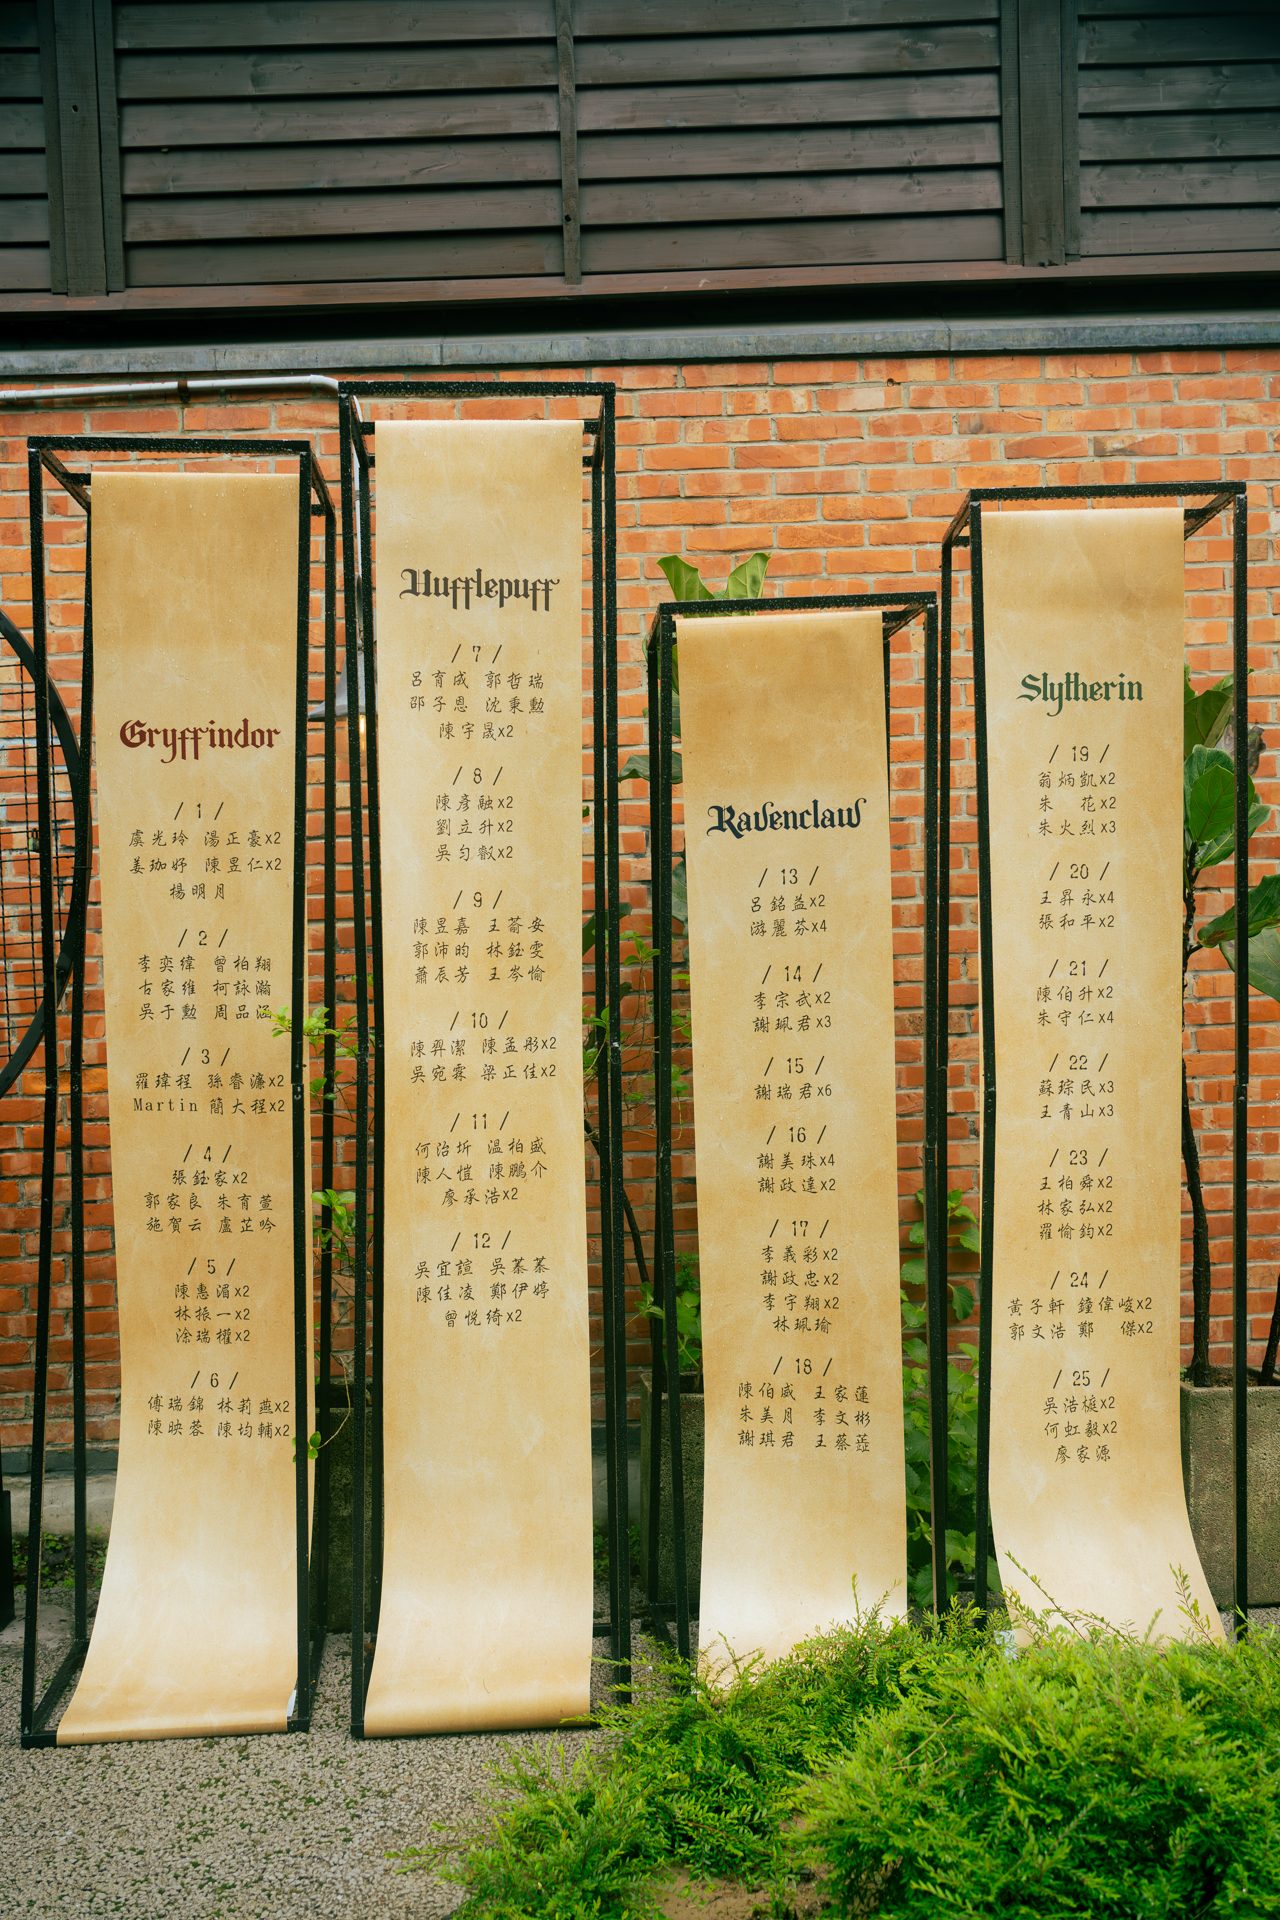 Gryffindor
/ 1 /
虞光玲 湯正豪x2
姜珈妤 陳昱仁x2
楊明月
/ 2 /
李奕緯 曾柏翔
古家維 柯詠瀚
吳于勳 周品涵
/ 3 /
羅瑋程 孫睿濂x2
Martin 簡大程x2
/ 4 /
張鈺家x2
郭家良 朱育萱
施賀云 盧芷吟
/ 5 /
陳惠湄x2
林振一x2
涂瑞權x2
/ 6 /
傅瑞錦 林莉燕x2
陳映蓉 陳均輔x2
Hufflepuff
/ 7 /
呂育成 郭哲瑞
邵子恩 沈秉勳
陳宇晟x2
/ 8 /
陳彥融x2
劉立升x2
吳勻叡x2
/ 9 /
陳昱嘉 王薔安
郭沛昀 林鈺雯
蕭辰芳 王岑愉
/ 10 /
陳羿潔 陳孟彤x2
吳宛霖 梁正佳x2
/ 11 /
何治圻 溫柏盛
陳人愷 陳鵬介
廖承浩x2
/ 12 /
吳宜諠 吳蓁蓁
陳佳凌 鄭伊婷
曾悅綺x2
Ravenclaw
/ 13 /
呂銘益x2
游麗芬x4
/ 14 /
李宗武x2
謝珮君x3
/ 15 /
謝瑞君x6
/ 16 /
謝美珠x4
謝政達x2
/ 17 /
李義彩x2
謝政忠x2
李宇翔x2
林珮瑜
/ 18 /
陳伯威 王家蓮
朱美月 李文彬
謝琪君 王蔡
Slytherin
/ 19 /
翁炳凱x2
朱 花x2
朱火烈x3
/ 20 /
王昇永x4
張和平x2
/ 21 /
陳伯升x2
朱守仁x4
/ 22 /
蘇琮民x3
王青山x3
/ 23 /
王柏舜x2
林家弘x2
羅愉鈞x2
/ 24 /
黃子軒 鐘偉峻x2
郭文浩 鄭 傑x2
/ 25 /
吳浩榳x2
何虹毅x2
廖家源